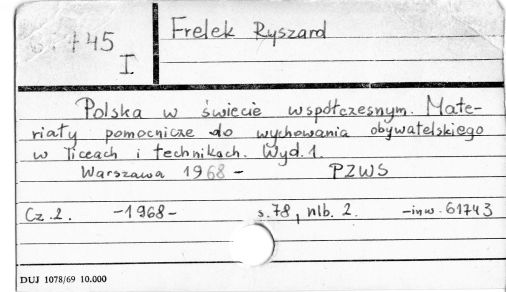 445
I
Frelek Ryszard
Polska w świecie współczesnym. Mate-
riały pomocnicze do wychowania obywatelskiego
w liceach i technikach. Wyd. 1.
Warszawa 1968 - PZWS
Cz. 2. -1968- s. 78, nlb. 2. -inw. 61743
DUJ 1078/69 10.000